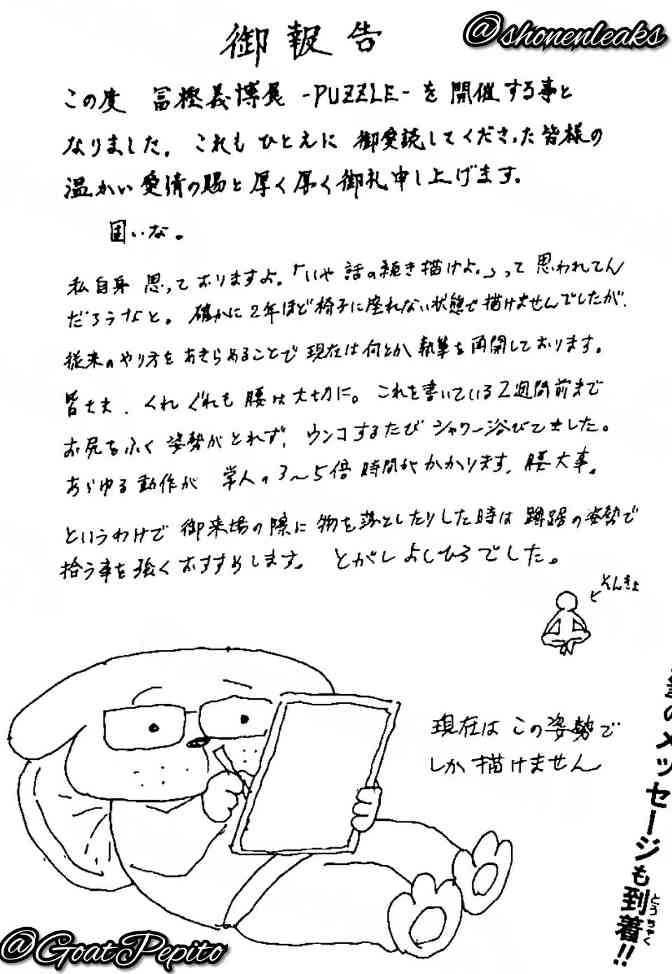 @shonenleaks
御報告
この度 冨樫義博展 -PUZZLE- を開催する事と
なりました。これもひとえに 御愛読してくださった皆様の
温かい愛情の賜と厚く厚く御礼申し上げます。
固いな。
私自身 思っておりますよ。「いや 話の続き描けよ。」って 思われてん
だろうなと。確かに2年ほど椅子に座れない状態で描けませんでしたが、
従来のやり方をあきらめることで 現在は何とか執筆を再開しております。
皆さま、くれぐれも 腰は大切に。これを書いている2週間前まで
お尻をふく姿勢がとれず、ウンコするたびシャワー浴びてました。
あらゆる動作が 常人の3〜5倍時間がかかります。腰大事。
というわけで 御来場の際に物を落としたりした時は 蹲踞の姿勢で
拾う事を強くおすすめします。とがしよしひろでした。
そんきょ
現在は この姿勢で
しか描けません
のメッセージも到着!!
とうちゃく
@GoatPepito